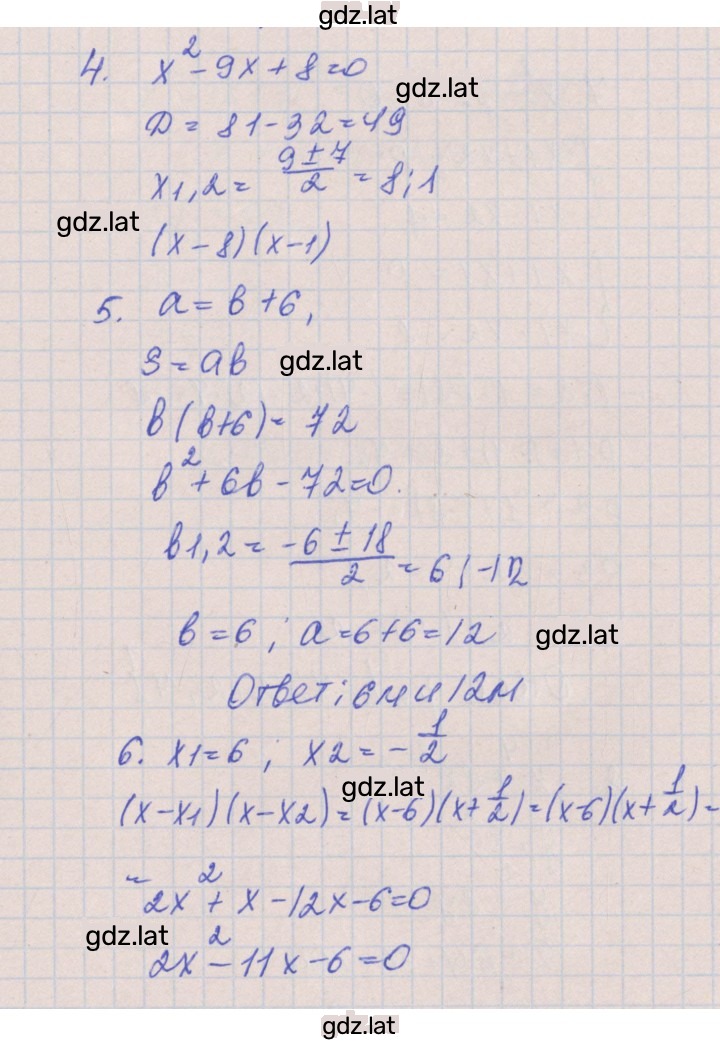 gdz.lat
4. x² - 9x + 8 = 0
gdz.lat
D = 81 - 32 = 49
x1,2 = (9 ± 7)/2 = 8; 1
gdz.lat
(x - 8)(x - 1)
5. a = b + 6,
S = ab gdz.lat
b(b+6) = 72
b² + 6b - 72 = 0.
b1,2 = (-6 ± 18)/2 = 6; -12
b = 6; a = 6+6 = 12 gdz.lat
Ответ: 6м и 12м
6. x1 = 6; x2 = -1/2
gdz.lat
(x-x1)(x-x2) = (x-6)(x+1/2) = (x-6)(x+1/2) =
= 2x² + x - 12x - 6 = 0
gdz.lat
2x² - 11x - 6 = 0
gdz.lat